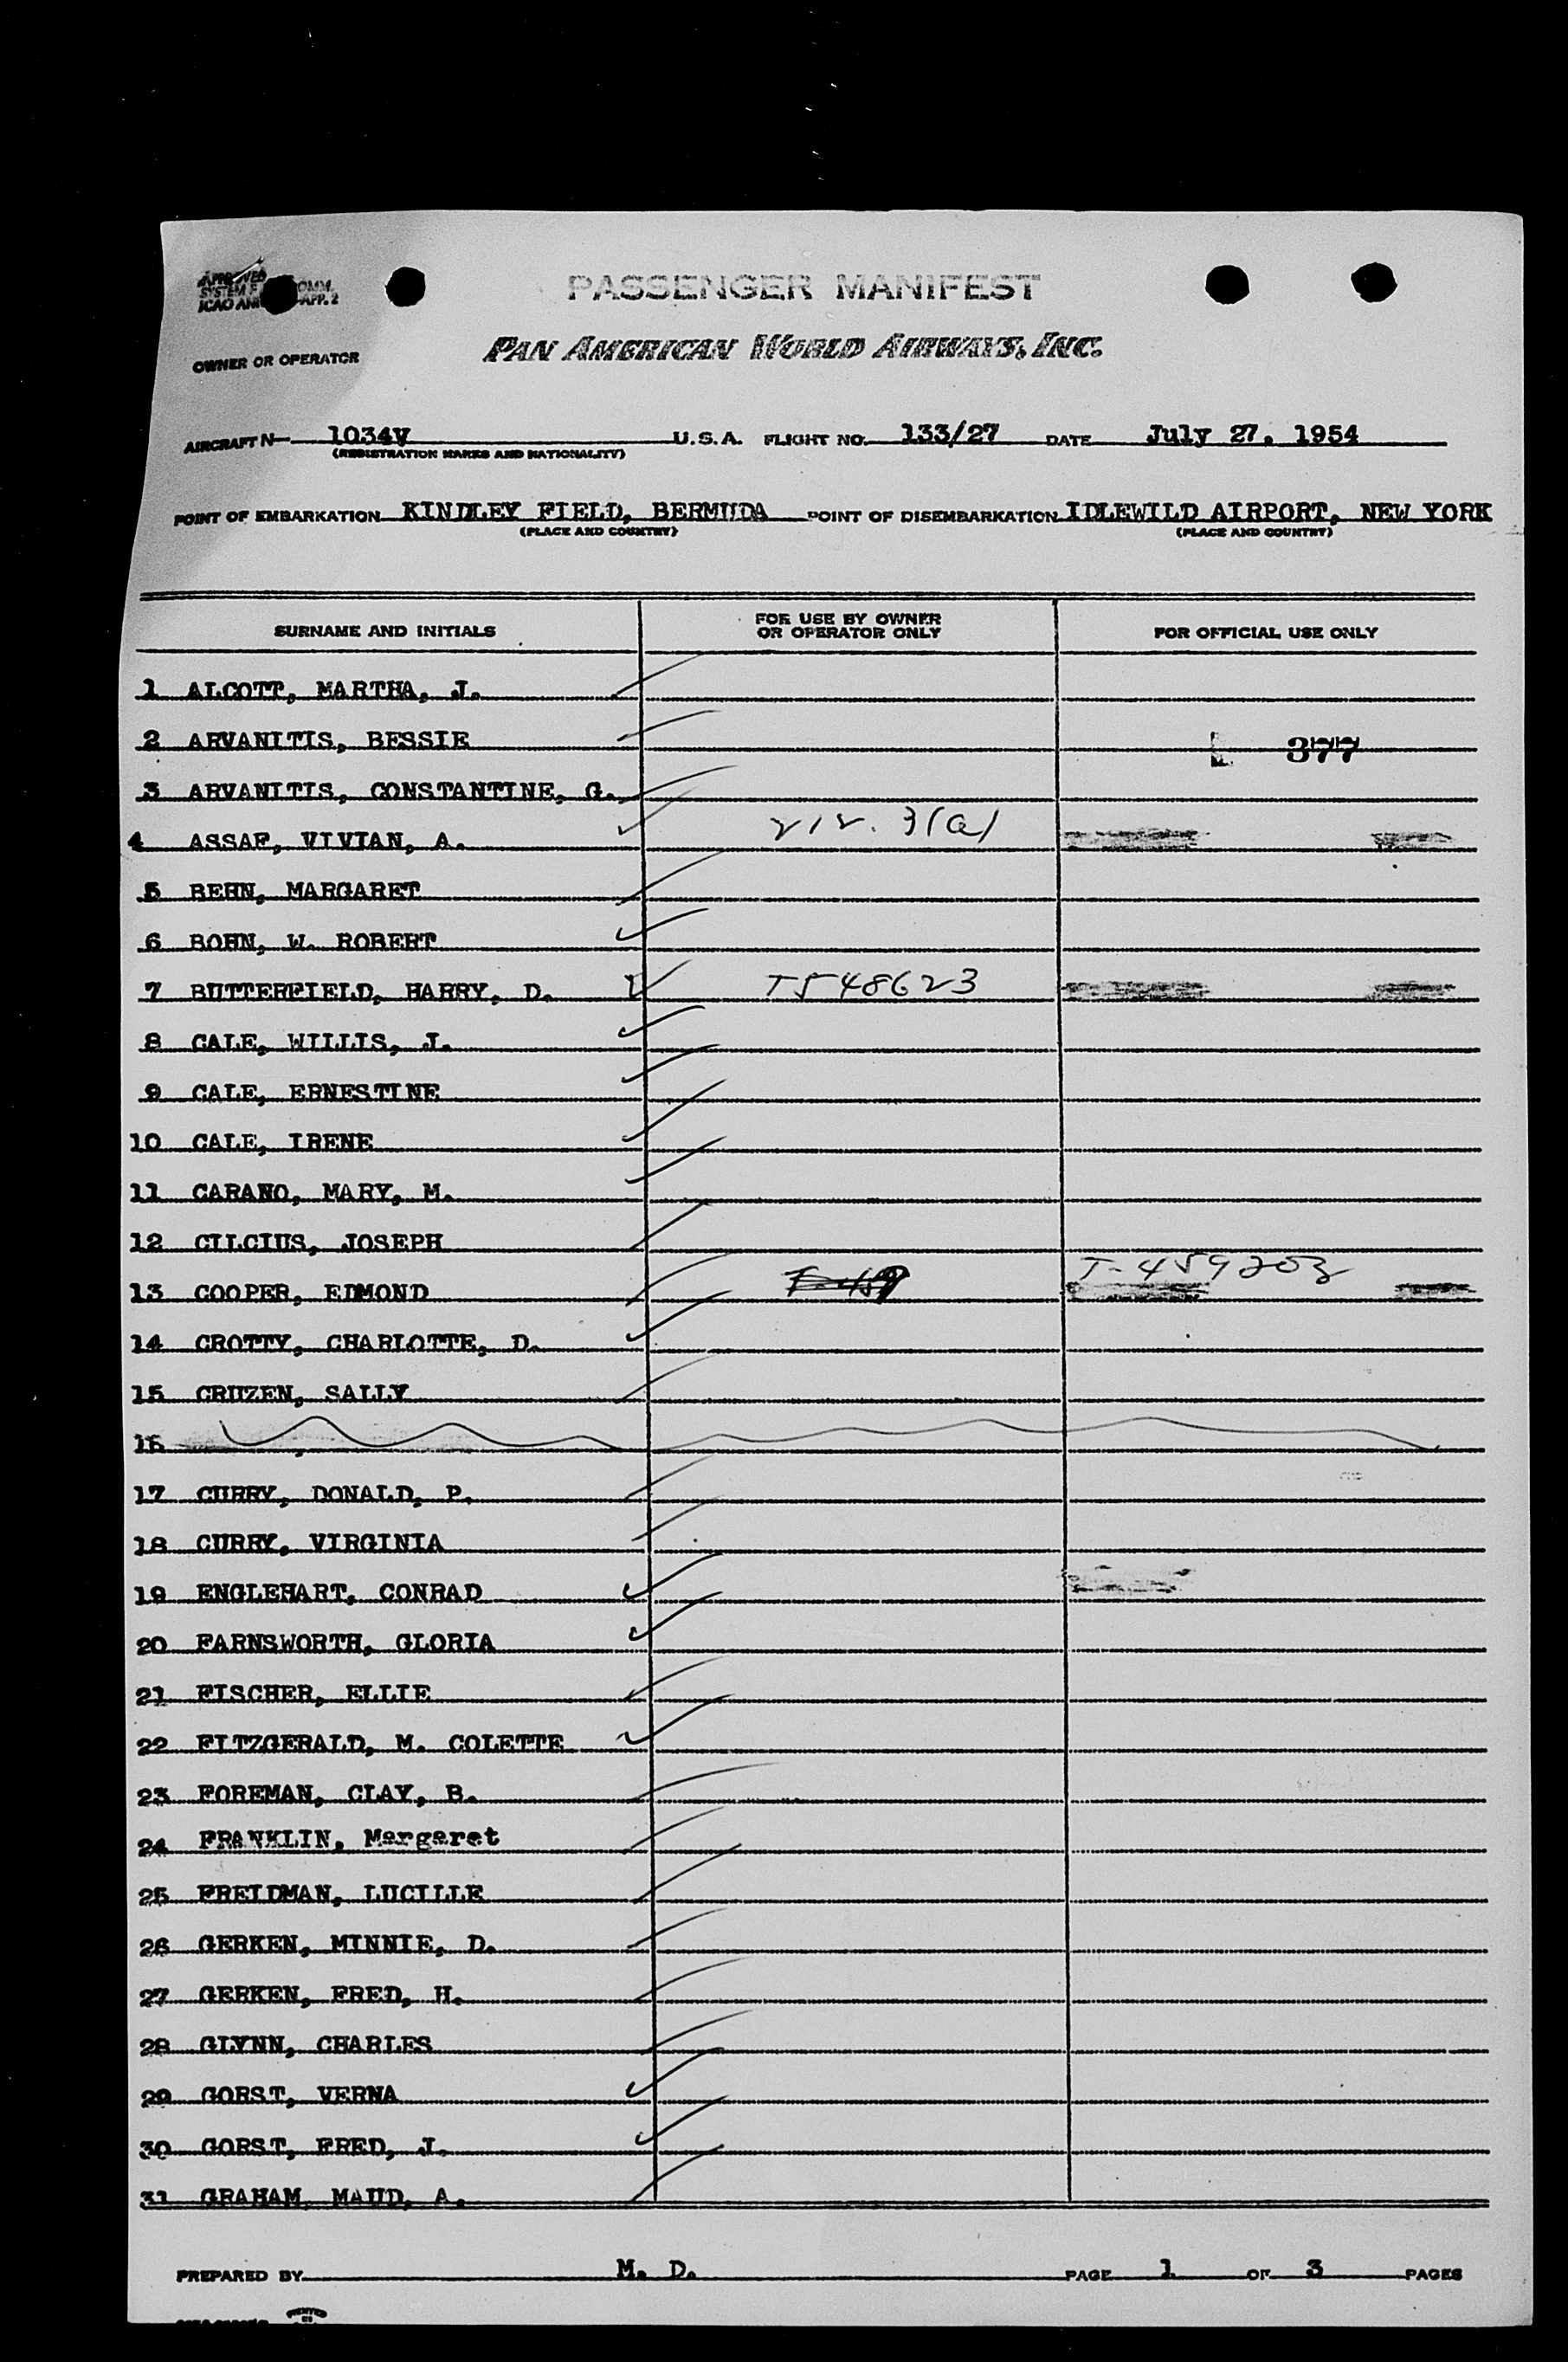 APPROVED
SYSTEM F OMM.
ICAO ANN APP. 2
PASSENGER MANIFEST
OWNER OR OPERATOR PAN AMERICAN WORLD AIRWAYS, INC.
AIRCRAFT N— 1034V U.S.A. FLIGHT NO. 133/27 DATE July 27. 1954
(REGISTRATION MARKS AND NATIONALITY)
POINT OF EMBARKATION KINDLEY FIELD, BERMUDA POINT OF DISEMBARKATION IDLEWILD AIRPORT, NEW YORK
(PLACE AND COUNTRY) (PLACE AND COUNTRY)
SURNAME AND INITIALS FOR USE BY OWNER OR OPERATOR ONLY FOR OFFICIAL USE ONLY
1 ALCOTT, MARTHA, J.
2 ARVANITIS, BESSIE 377
3 ARVANITIS, CONSTANTINE, G.
4 ASSAF, VIVIAN, A. 212. 3(a)
5 BEHN, MARGARET
6 BOHN, W. ROBERT
7 BUTTERFIELD, HARRY, D. T548623
8 CALE, WILLIS, J.
9 CALE, ERNESTINE
10 CALE, IRENE
11 CARANO, MARY, M.
12 CILCIUS, JOSEPH
13 COOPER, EDMOND T-459 T-459203
14 CROTTY, CHARLOTTE, D.
15 CRUZEN, SALLY
16 ,
17 CURRY, DONALD, P.
18 CURRY, VIRGINIA
19 ENGLEHART, CONRAD
20 FARNSWORTH, GLORIA
21 FISCHER, ELLIE
22 FITZGERALD, M. COLETTE
23 FOREMAN, CLAY, B.
24 FRANKLIN, Margaret
25 FREIDMAN, LUCILLE
26 GERKEN, MINNIE, D.
27 GERKEN, FRED, H.
28 GLYNN, CHARLES
29 GORST, VERNA
30 GORST, FRED, J.
31 GRAHAM, MAUD, A.
PREPARED BY M. D. PAGE 1 OF 3 PAGES
PRINTED